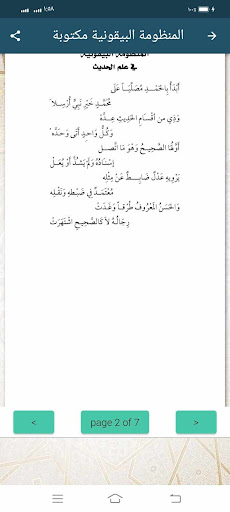 ١:٥٨
المنظومة البيقونية مكتوبة
المنظومة البيقونية
في علم الحديث
أَبْدَأُ بِالحَمْدِ مُصَلِّيَاً عَلَى
مُحَمَّدٍ خَيْرِ نَبِيٍّ أُرْسِلَا
وَذِي مِنَ أقْسَامِ الحَدِيثِ عِدَّهْ
وَكُلُّ وَاحِدٍ أَتَى وَحَدَّهْ
أَوَّلُهَا الصَّحِيحُ وَهْوَ مَا اتَّصَل
إِسْنَادُهُ وَلَمْ يَشُذَّ أَوْ يُعَلْ
يَرْوِيهِ عَدْلٌ ضَابِطٌ عَنْ مِثْلِهِ
مُعْتَمَدٌ فِي ضَبْطِهِ وَنَقْلِهِ
وَالحَسَنُ المَعْرُوفُ طُرْقَاً وَغَدَتْ
رِجَالُهُ لاَ كَالصَّحِيحِ اشْتَهَرَتْ
< page 2 of 7 >